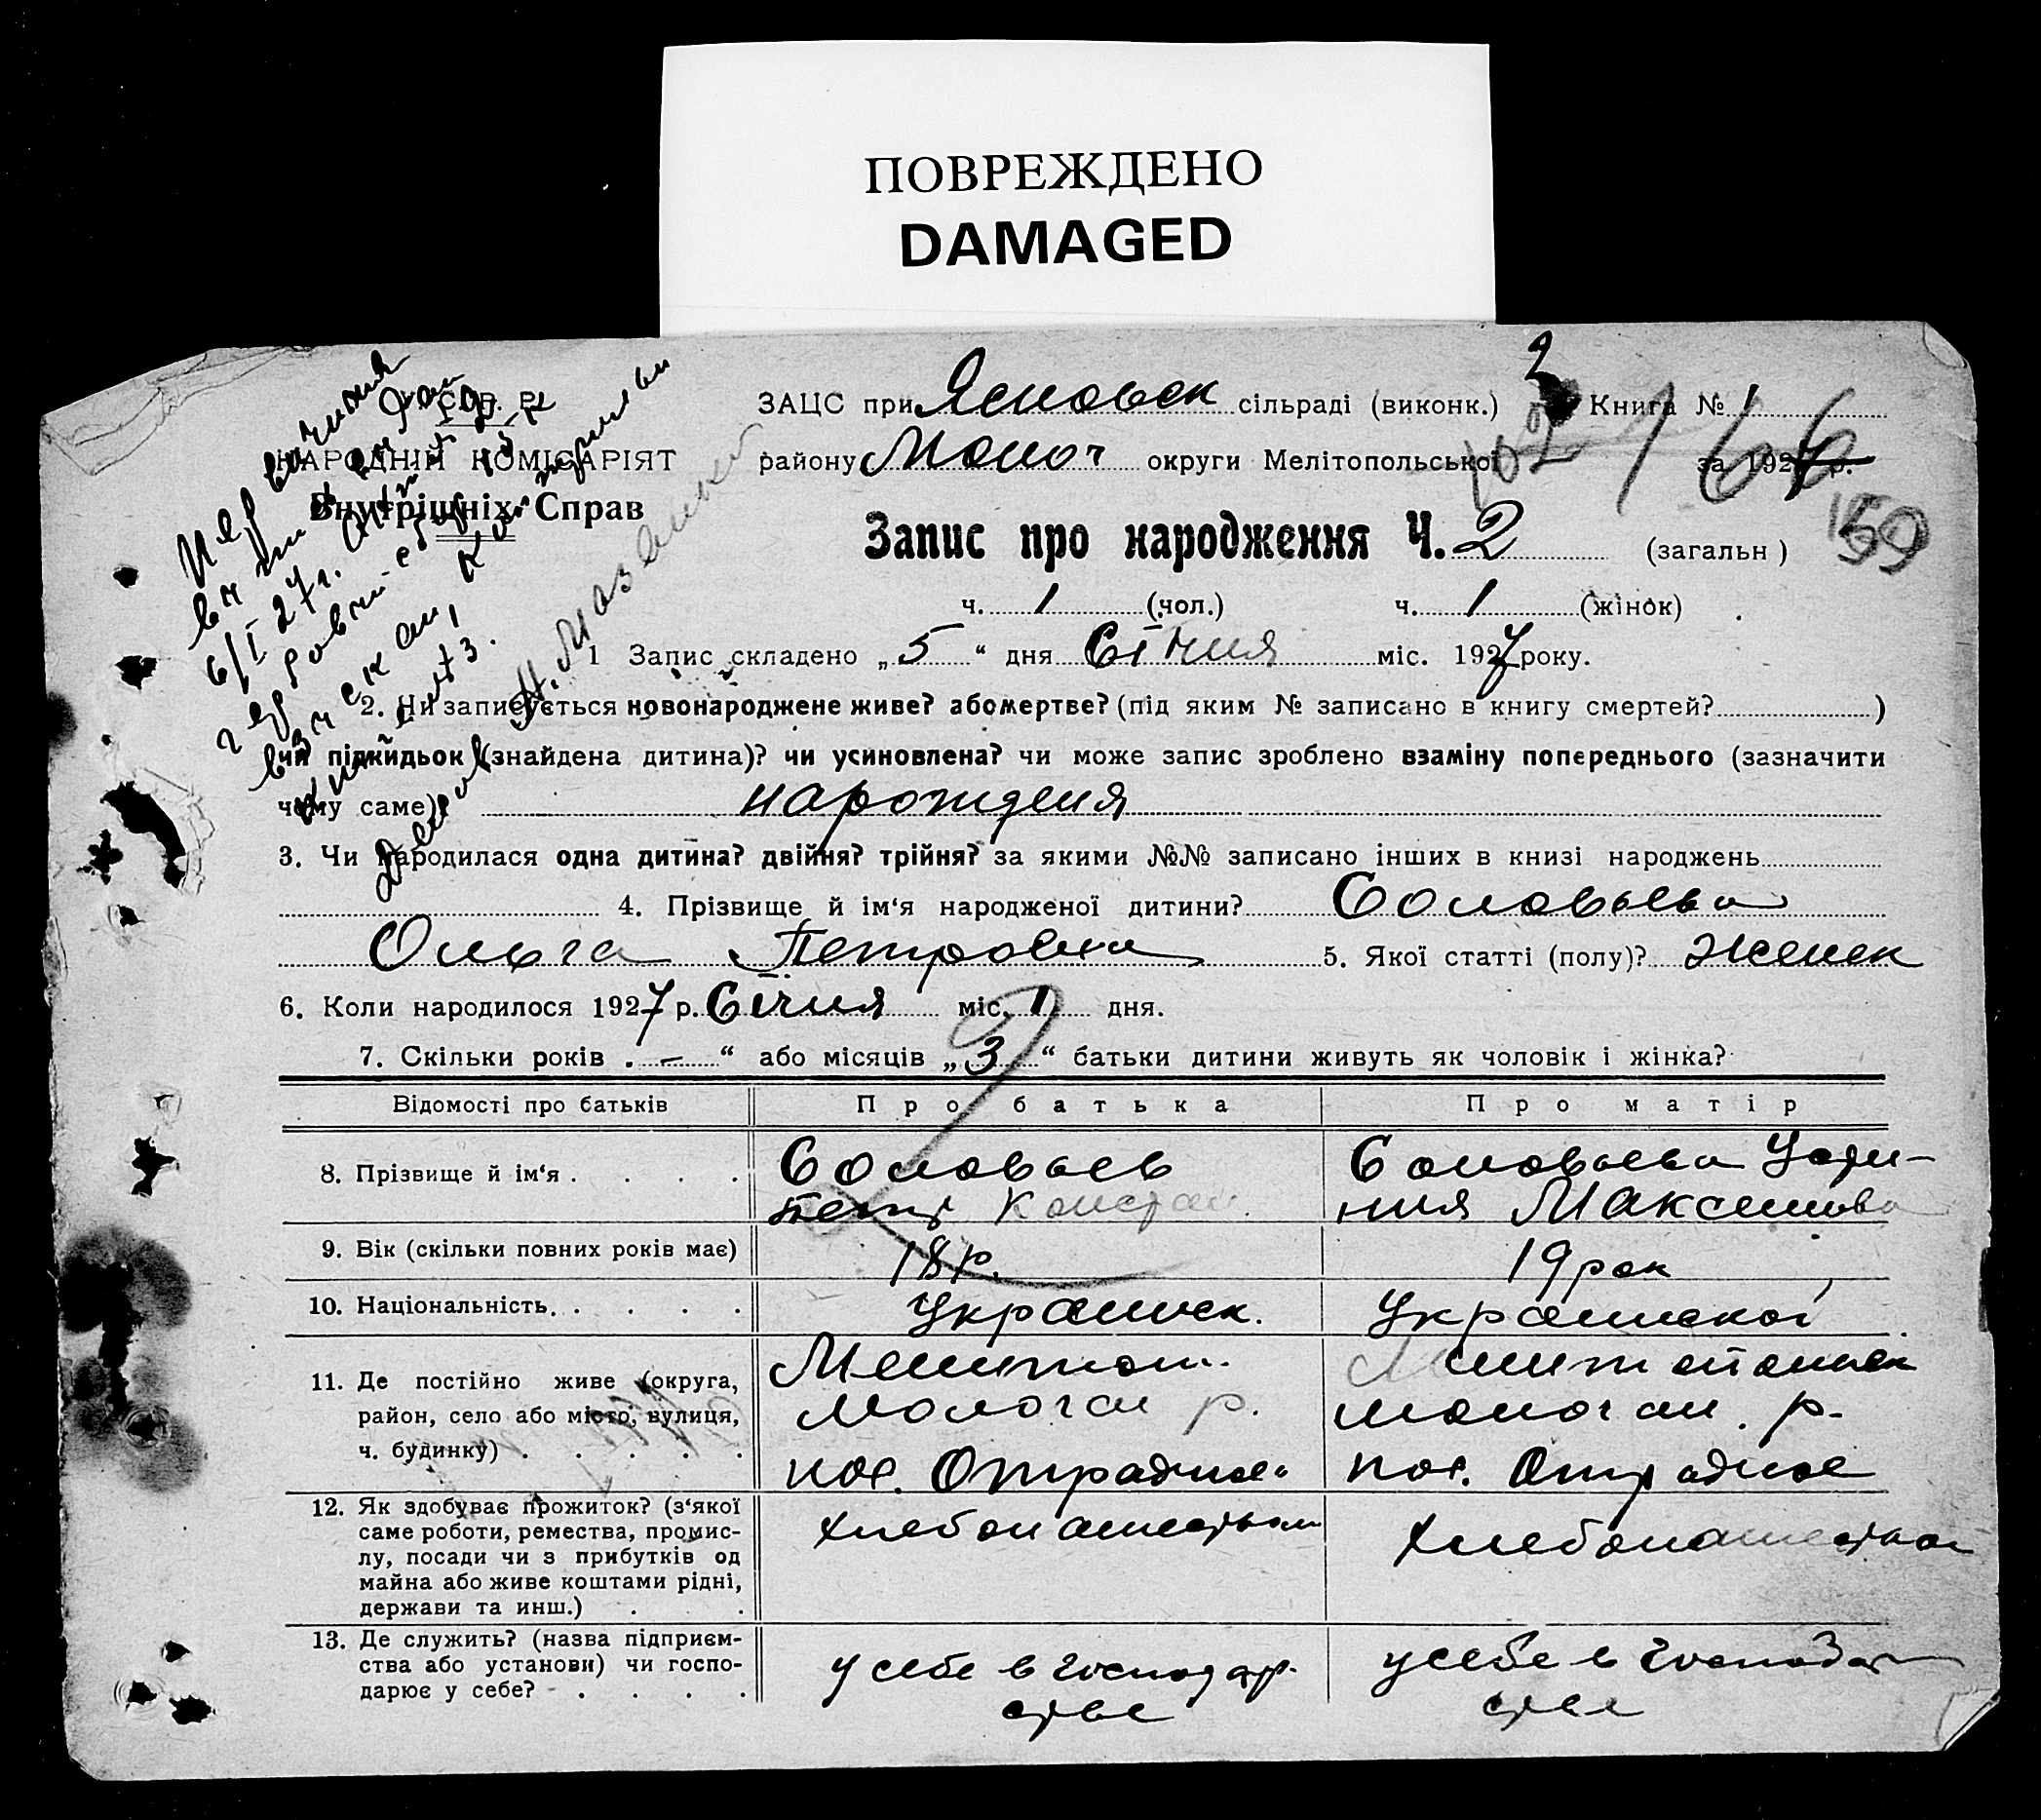 ПОВРЕЖДЕНО
DAMAGED
НАРОДНІЙ КОМІСАРІЯТ
Внутрішніх Справ
ЗАЦС при Ясновск сільраді (виконк.) Книга № 1
району Молоч округи Мелітопольської за 1927 р.
102 166
159
Запис про народження Ч. 2 (загальн)
ч. 1 (чол.) ч. 1 (жінок)
1 Запис складено „5“ дня Січня міс. 1927 року.
2. Чи записується новонароджене живе? або мертве? (під яким № записано в книгу смертей? )
чи підкидьок (знайдена дитина)? чи усиновлена? чи може запис зроблено взаміну попереднього (зазначити
чому саме) нарождения
3. Чи народилася одна дитина? двійня? трійня? за якими №№ записано інших в книзі народжень
4. Прізвище й ім‘я народженої дитини? Соловьева
Ольга Петровна 5. Якої статті (полу)? женск
6. Коли народилося 1927 р. Січня міс. 1 дня.
7. Скільки років . — “ або місяців „3“ батьки дитини живуть як чоловік і жінка?
Відомості про батьків Про батька Про матір
8. Прізвище й ім‘я . . . . Соловьев Соловьева Усти-
Петр Констан ния Максимова
9. Вік (скільки повних років має) 18 р. 19 рок
10. Національність . . . . Украинск. Украинской
11. Де постійно живе (округа, Мелитоп. Мелитопольск
район, село або місто, вулиця, Молочан р. молочан. р.
ч. будинку) . . . . . пос. Отрадное пос. Отрадное
12. Як здобуває прожиток? (з‘якої хлебопашеством хлебопашество
саме роботи, ремества, промис-
лу, посади чи з прибутків од
майна або живе коштами рідні,
держави та инш.) . .
13. Де служить? (назва підприєм-
ства або установи) чи госпо- у себе в господар- у себе в господар
дарює у себе? - . . . . стве стве